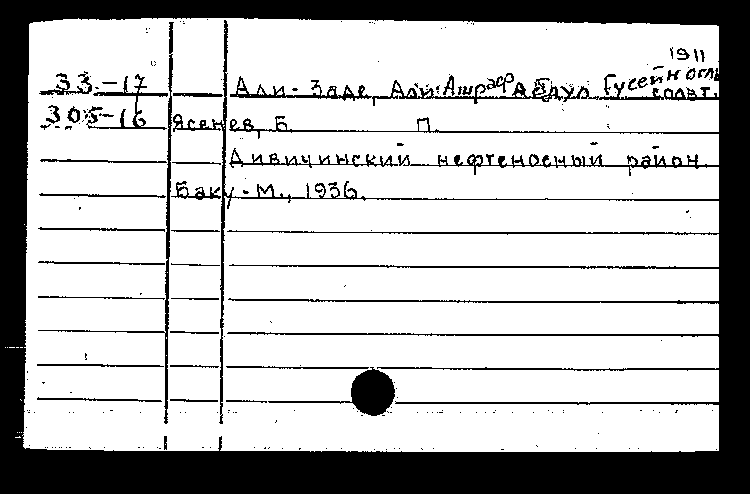 1911
33-17 Али-Заде, Али-Ашраф Абдул Гусейн оглы
соавт.
305-16 Ясенев, Б. П.
Дивичинский нефтеносный район.
Баку-М., 1936.